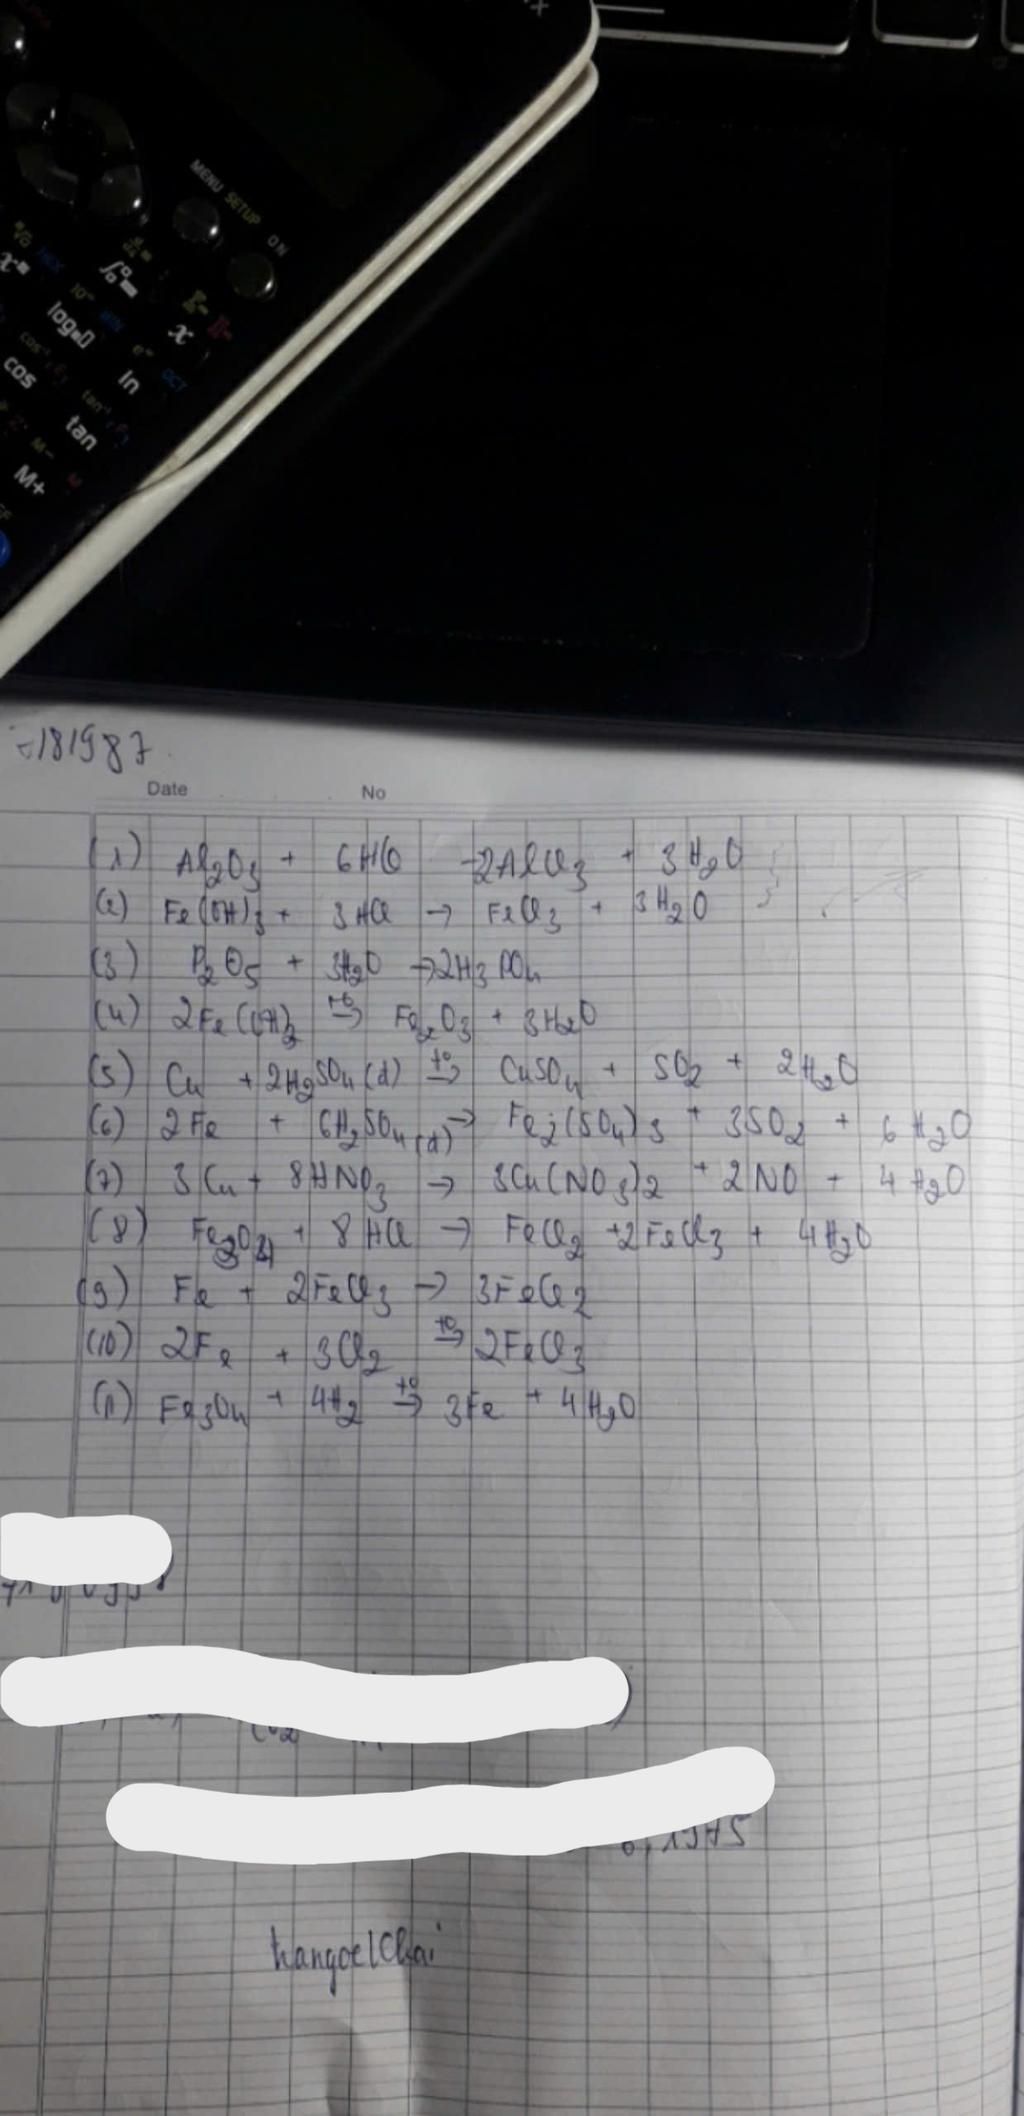 MENU SETUP ON
log
ln
cos
tan
M-
M+
181987
Date No
(1) Al2O3 + 6HCl → 2AlCl3 + 3H2O
(2) Fe(OH)3 + 3HCl → FeCl3 + 3H2O
(3) P2O5 + 3H2O → 2H3PO4
(4) 2Fe(OH)3 t°→ Fe2O3 + 3H2O
(5) Cu + 2H2SO4(đ) t°→ CuSO4 + SO2 + 2H2O
(6) 2Fe + 6H2SO4(đ) → Fe2(SO4)3 + 3SO2 + 6H2O
(7) 3Cu + 8HNO3 → 3Cu(NO3)2 + 2NO + 4H2O
(8) Fe3O4 + 8HCl → FeCl2 + 2FeCl3 + 4H2O
(9) Fe + 2FeCl3 → 3FeCl2
(10) 2Fe + 3Cl2 t°→ 2FeCl3
(11) Fe3O4 + 4H2 t°→ 3Fe + 4H2O